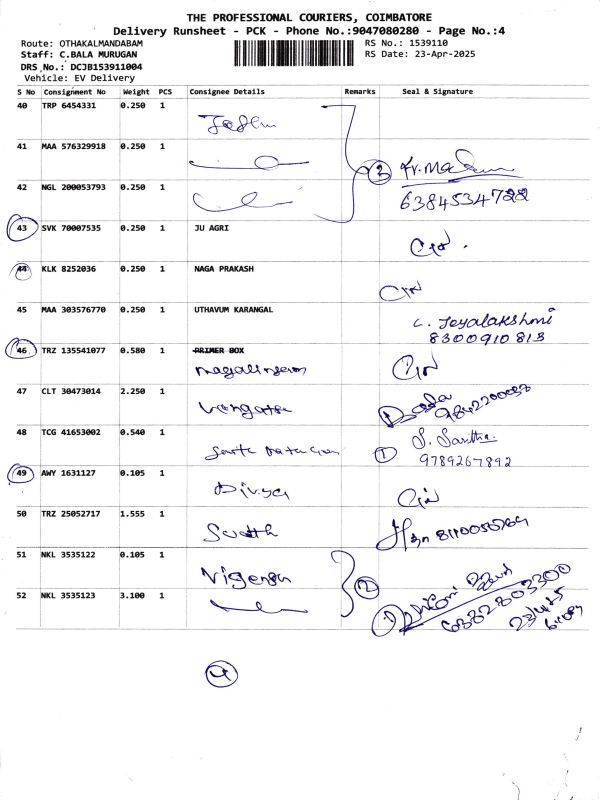 THE PROFESSIONAL COURIERS, COIMBATORE
Delivery Runsheet - PCK - Phone No.:9047080280 - Page No.:4
Route: OTHAKALMANDABAM RS No.: 1539110
Staff: C.BALA MURUGAN RS Date: 23-Apr-2025
DRS No.: DCJB153911004
Vehicle: EV Delivery
S No Consignment No Weight PCS Consignee Details Remarks Seal & Signature
40 TRP 6454331 0.250 1
41 MAA 576329918 0.250 1
3
42 NGL 200053793 0.250 1 6384534722
43 SVK 70007535 0.250 1 JU AGRI
44 KLK 8252036 0.250 1 NAGA PRAKASH
45 MAA 303576770 0.250 1 UTHAVUM KARANGAL C. Jeyalakshmi
8300910813
46 TRZ 135541077 0.580 1 PRIMER BOX
47 CLT 30473014 2.250 1 9842200037
48 TCG 41653002 0.540 1 1 S. Santha
9789267892
49 AWY 1631127 0.105 1 Divya
50 TRZ 25052717 1.555 1
51 NKL 3535122 0.105 1
2
52 NKL 3535123 3.100 1
23/4/25
4